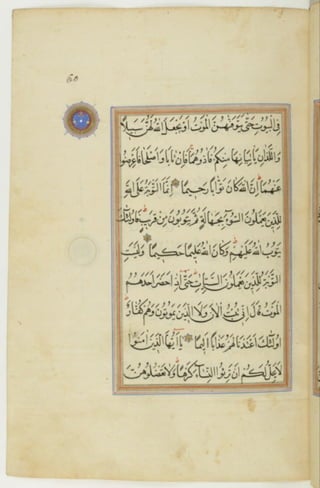 60
في البيوت حتى يتوفهن الموت او يجعل الله لهن سبيلا
واللذان ياتيانها منكم فاذوهما فان تابا واصلحا فاعرضوا
عنهما ان الله كان توابا رحيما انما التوبة على الله
للذين يعملون السوء بجهالة ثم يتوبون من قريب فاولئك
يتوب الله عليهم وكان الله عليما حكيما وليست
التوبة للذين يعملون السيئات حتى اذا حضر احدهم
الموت قال اني تبت الان ولا الذين يموتون وهم كفار
اولئك اعتدنا لهم عذابا اليما يا ايها الذين امنوا
لا يحل لكم ان ترثوا النساء كرها ولا تعضلوهن